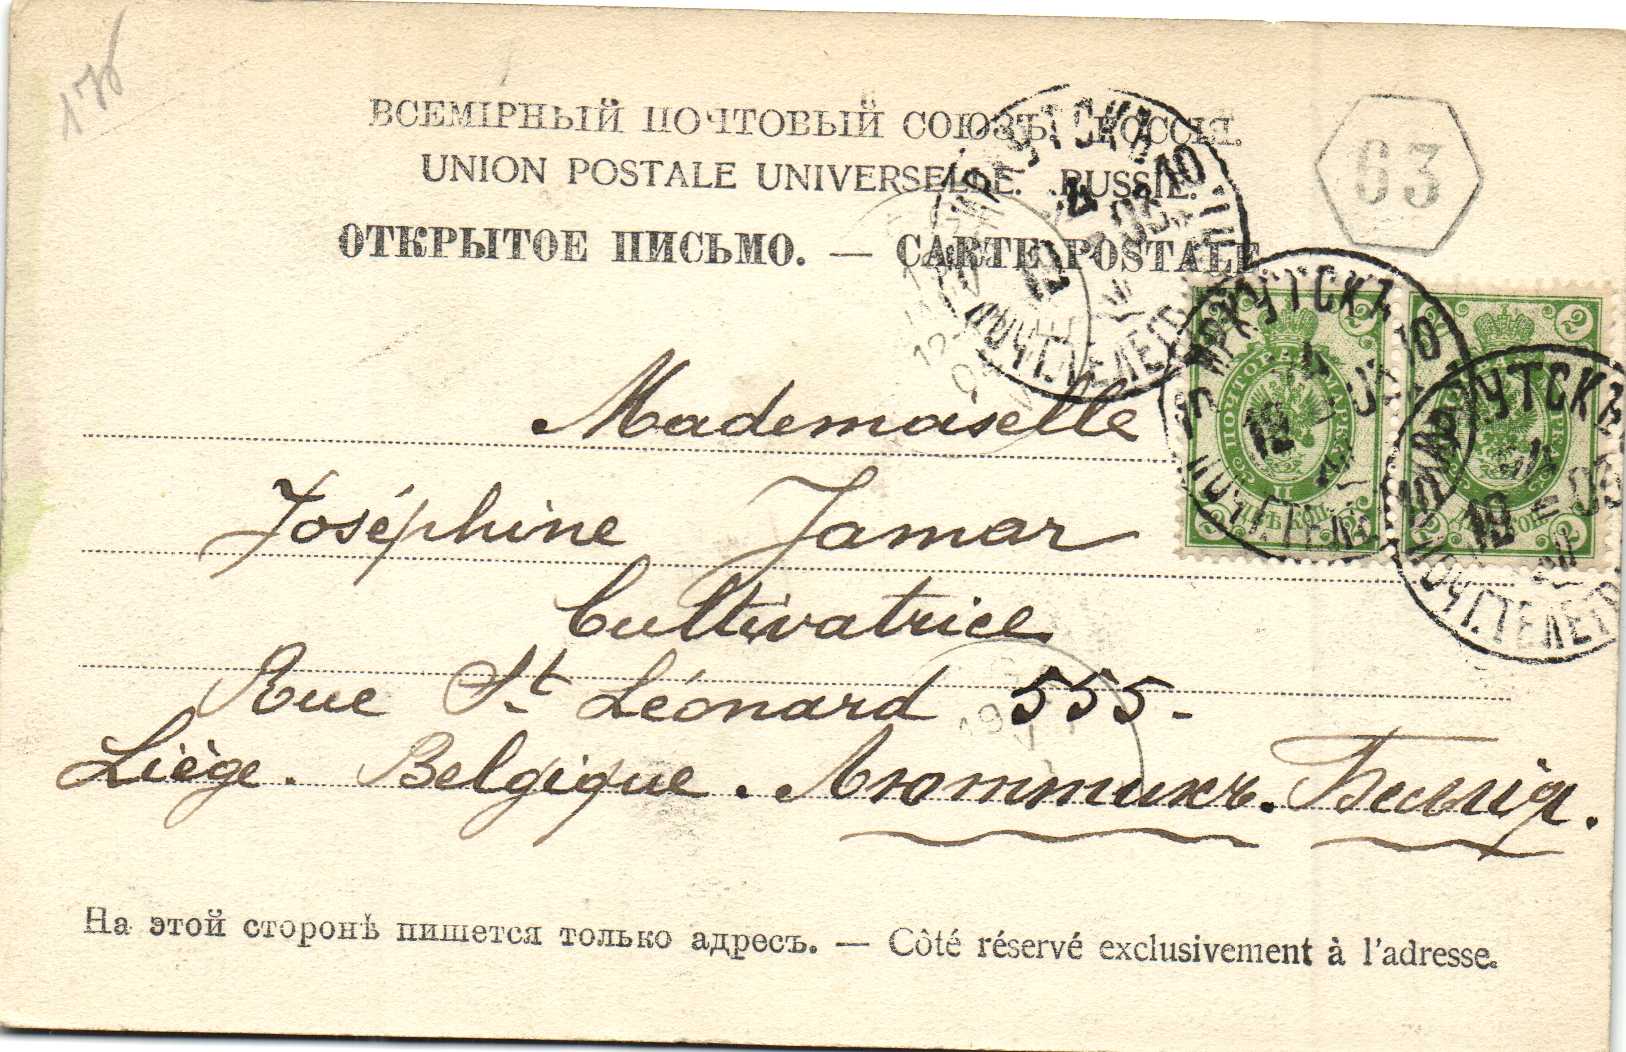 176
ВСЕМІРНЫЙ ПОЧТОВЫЙ СОЮЗЪ. РОССІЯ.
UNION POSTALE UNIVERSELLE. RUSSIE.
ОТКРЫТОЕ ПИСЬМО. — CARTE POSTALE.
63
ИРКУТСКЪ
ПОЧТ. ТЕЛЕГР.
ИРКУТСКЪ
ИРКУТСКЪ
ПОЧТ. ТЕЛЕГР.
2 2
Mademoiselle
Joséphine Jamar
Cultivatrice
Rue St Léonard 555-
Liège. Belgique. Люттихъ. Бельгія.
На этой сторонѣ пишется только адресъ. — Côté réservé exclusivement à l'adresse.